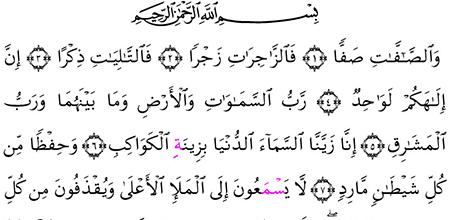 بِسْمِ اللَّهِ الرَّحْمَٰنِ الرَّحِيمِ
وَالصَّافَّاتِ صَفًّا ﴿١﴾ فَالزَّاجِرَاتِ زَجْرًا ﴿٢﴾ فَالتَّالِيَاتِ ذِكْرًا ﴿٣﴾ إِنَّ
إِلَٰهَكُمْ لَوَاحِدٌ ﴿٤﴾ رَبُّ السَّمَاوَاتِ وَالْأَرْضِ وَمَا بَيْنَهُمَا وَرَبُّ
الْمَشَارِقِ ﴿٥﴾ إِنَّا زَيَّنَّا السَّمَاءَ الدُّنْيَا بِزِينَةِ الْكَوَاكِبِ ﴿٦﴾ وَحِفْظًا مِّن
كُلِّ شَيْطَانٍ مَّارِدٍ ﴿٧﴾ لَّا يَسْمَعُونَ إِلَى الْمَلَإِ الْأَعْلَىٰ وَيُقْذَفُونَ مِن كُلِّ